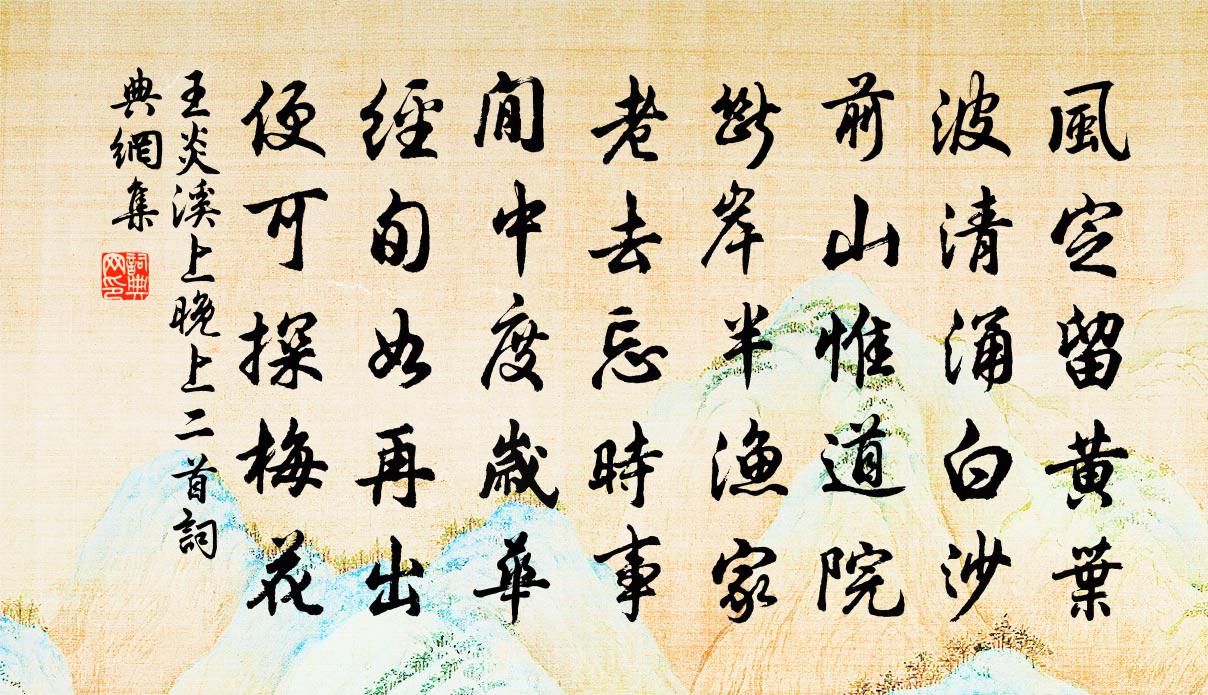 風定留黃葉
波清涌白沙
前山惟道院
斷岸半漁家
老去忘時事
閒中度歲華
經旬如再出
便可探梅花
王炎溪上晚上二首詞
典網集
詞典
网印